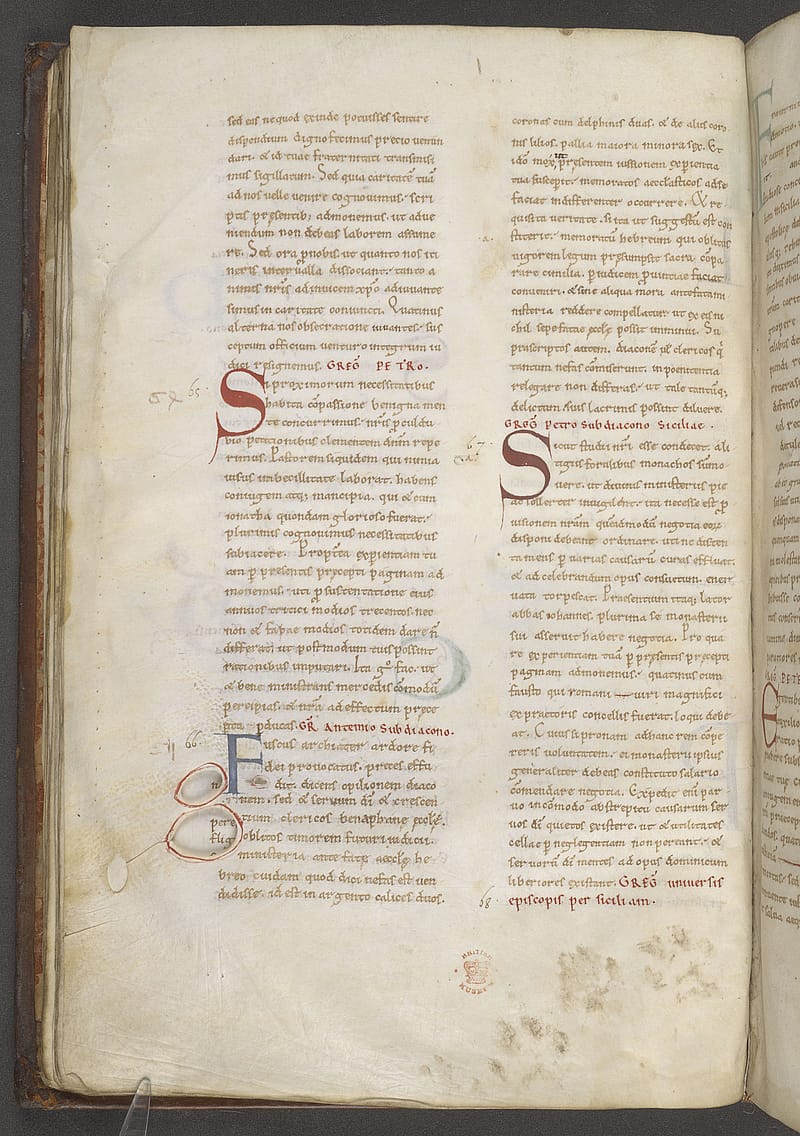 sed eis ne quod exinde potuisses sentire
dispendium digno fecimus precio venun
dari. et id tuae fraternitati transmisi
mus sigillatum. Sed quia caritatē tuā
ad nos velle venire cognovimus. scri
ptis presentib; admonemus. ut adve
niendum non debeas laborem assume
re. Sed ora p nobis. ut quanto nos iti
neris intervalla dissociant. tanto a
nimis nr̄is ad invicem xp̄o adiuvante
simus in caritate coniuncti. Quatinus
alterna nos obsecratione iuvantes. sus
ceptum officium venturo integrum iu
dici resignemus. GREḠ PETRO.
65
Si proximorum necessitatibus
habita cōpassione benigna men
te concurrimus. nr̄is pculdu
bio petitionibus clementem dn̄m repe
rimus. Pastorem siquidem qui nimia
visus imbecillitate laborat. habens
coniugem atq; mancipia. qui et cum
ionatha quondam glorioso fuerat.
plurimis cognovimus necessitatibus
subiacere. Propterea experientiam tu
am p presentis precepti paginam ad
monemus. uti p sustentatione eius
annuos tritici modios trecentos. nec
non et fabae modios totidem dare n̄
differas. ut postmodum tuis possint
rationibus imputari. Ita g° fac. ut
et bene ministrans mercedis cōmodū
percipias. et nr̄a ad effectum prece
pta pducas. GR̄ Antemio Subdiacono.
66
Fuscus archiater ardore fi
dei provocatus. preces effu
dit. dicens opilionem diaco
num. sed et servum dī et crescen
tium clericos venaphane eccłę.
oblitos timorem futuri iudicii.
ministeria ante fatę aeccłę he
breo cuidam quod dici nefas est ven
didisse. id est in argento calices duos.
coronas cum delphinis duas. et de aliis coro
nis lilios. pallia maiora minora sex. Et
ido mox presentem iussionem experientia
tua susceperit. memoratos aecclasticos ad se
faciat indifferenter occurrere. Et re
quisita veritate. si ita ut suggestū est con
stiterit. memoratū hebreum qui oblitus
vigorem legum presumpsit sacra cōpa
rare cimilia. p iudicem pvintiae faciat
conveniri. et sine aliqua mora antefata mi
nisteria reddere compellatur. ut ex eis ni
chil sepe fatae eccłę possit imminui. Su
prascriptos autem. diaconē vel clericos q̇
tantum nefas cōmiserint. in poenitentia
relegare non differas. ut tale tantūq;
delictum suis lacrimis possint diluere.
GREḠ Petro Subdiacono Siciliae.
67
Sicut studii nr̄i esse condecet. ali
tigiis foralibus monachos sūmo
vere. ut divinis ministeriis pie
ac sollerter invigilent. ita necesse est p
visionem nr̄am quēadmodū negotia eorū
disponi debeant ordinare. uti ne disten
ta mens p varias causarū curas effluat.
et ad celebrandum opus consuetum. ener
vata torpescat. Praesentium itaq; lator
abbas iohannes. plurima se monasterii
sui asseruit habere negotia. Pro qua
re experientiam tuā p presentis precepti
paginam admonemus. quatinus cum
fausto qui romani viri magnifici
ex praetoris concellis fuerat. loqui debe
at. Cuius si pronam adhuc rem cōpe
reris voluntatem. ei monasterii ipsius
generaliter debeas constituto salario
cōmendare negotia. Expedit eni par
vo incōmodo abstrepitu causarum ser
vos dī quietos existere. ut et utilitates
cellae p neglegentiam non pereant. et
servorū dī mentes ad opus dominicum
liberiores existant. GREḠ universis
68
episcopis per siciliam.
BRITISH MUSEUM